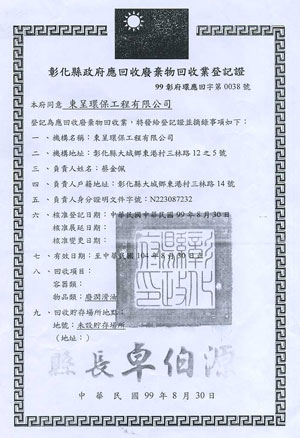 彰化縣政府應回收廢棄物回收業登記證
99 彰府環應回字第0038 號
本府同意 東呈環保工程有限公司
登記為應回收廢棄物回收業，特發給登記證並摘錄事項如下：
一、機構名稱：東呈環保工程有限公司
二、機構地址：彰化縣大城鄉東港村三林路12之5號
三、負責人姓名：蔡金佩
四、負責人戶籍地址：彰化縣大城鄉東港村三林路14號
五、負責人身份證明文件字號：N223087232
六、核准登記日期：中華民國中華民國99年8月30日
核准展延日期：
核准變更日期：
七、有效日期：至中華民國104年8月30日止
八、回收項目：
容器類：
物品類：廢潤滑油
九、回收貯存場所地點：
地號：未設貯存場所
（地址：）
彰化縣政府印
縣長卓伯源
中華民國99年8月30日